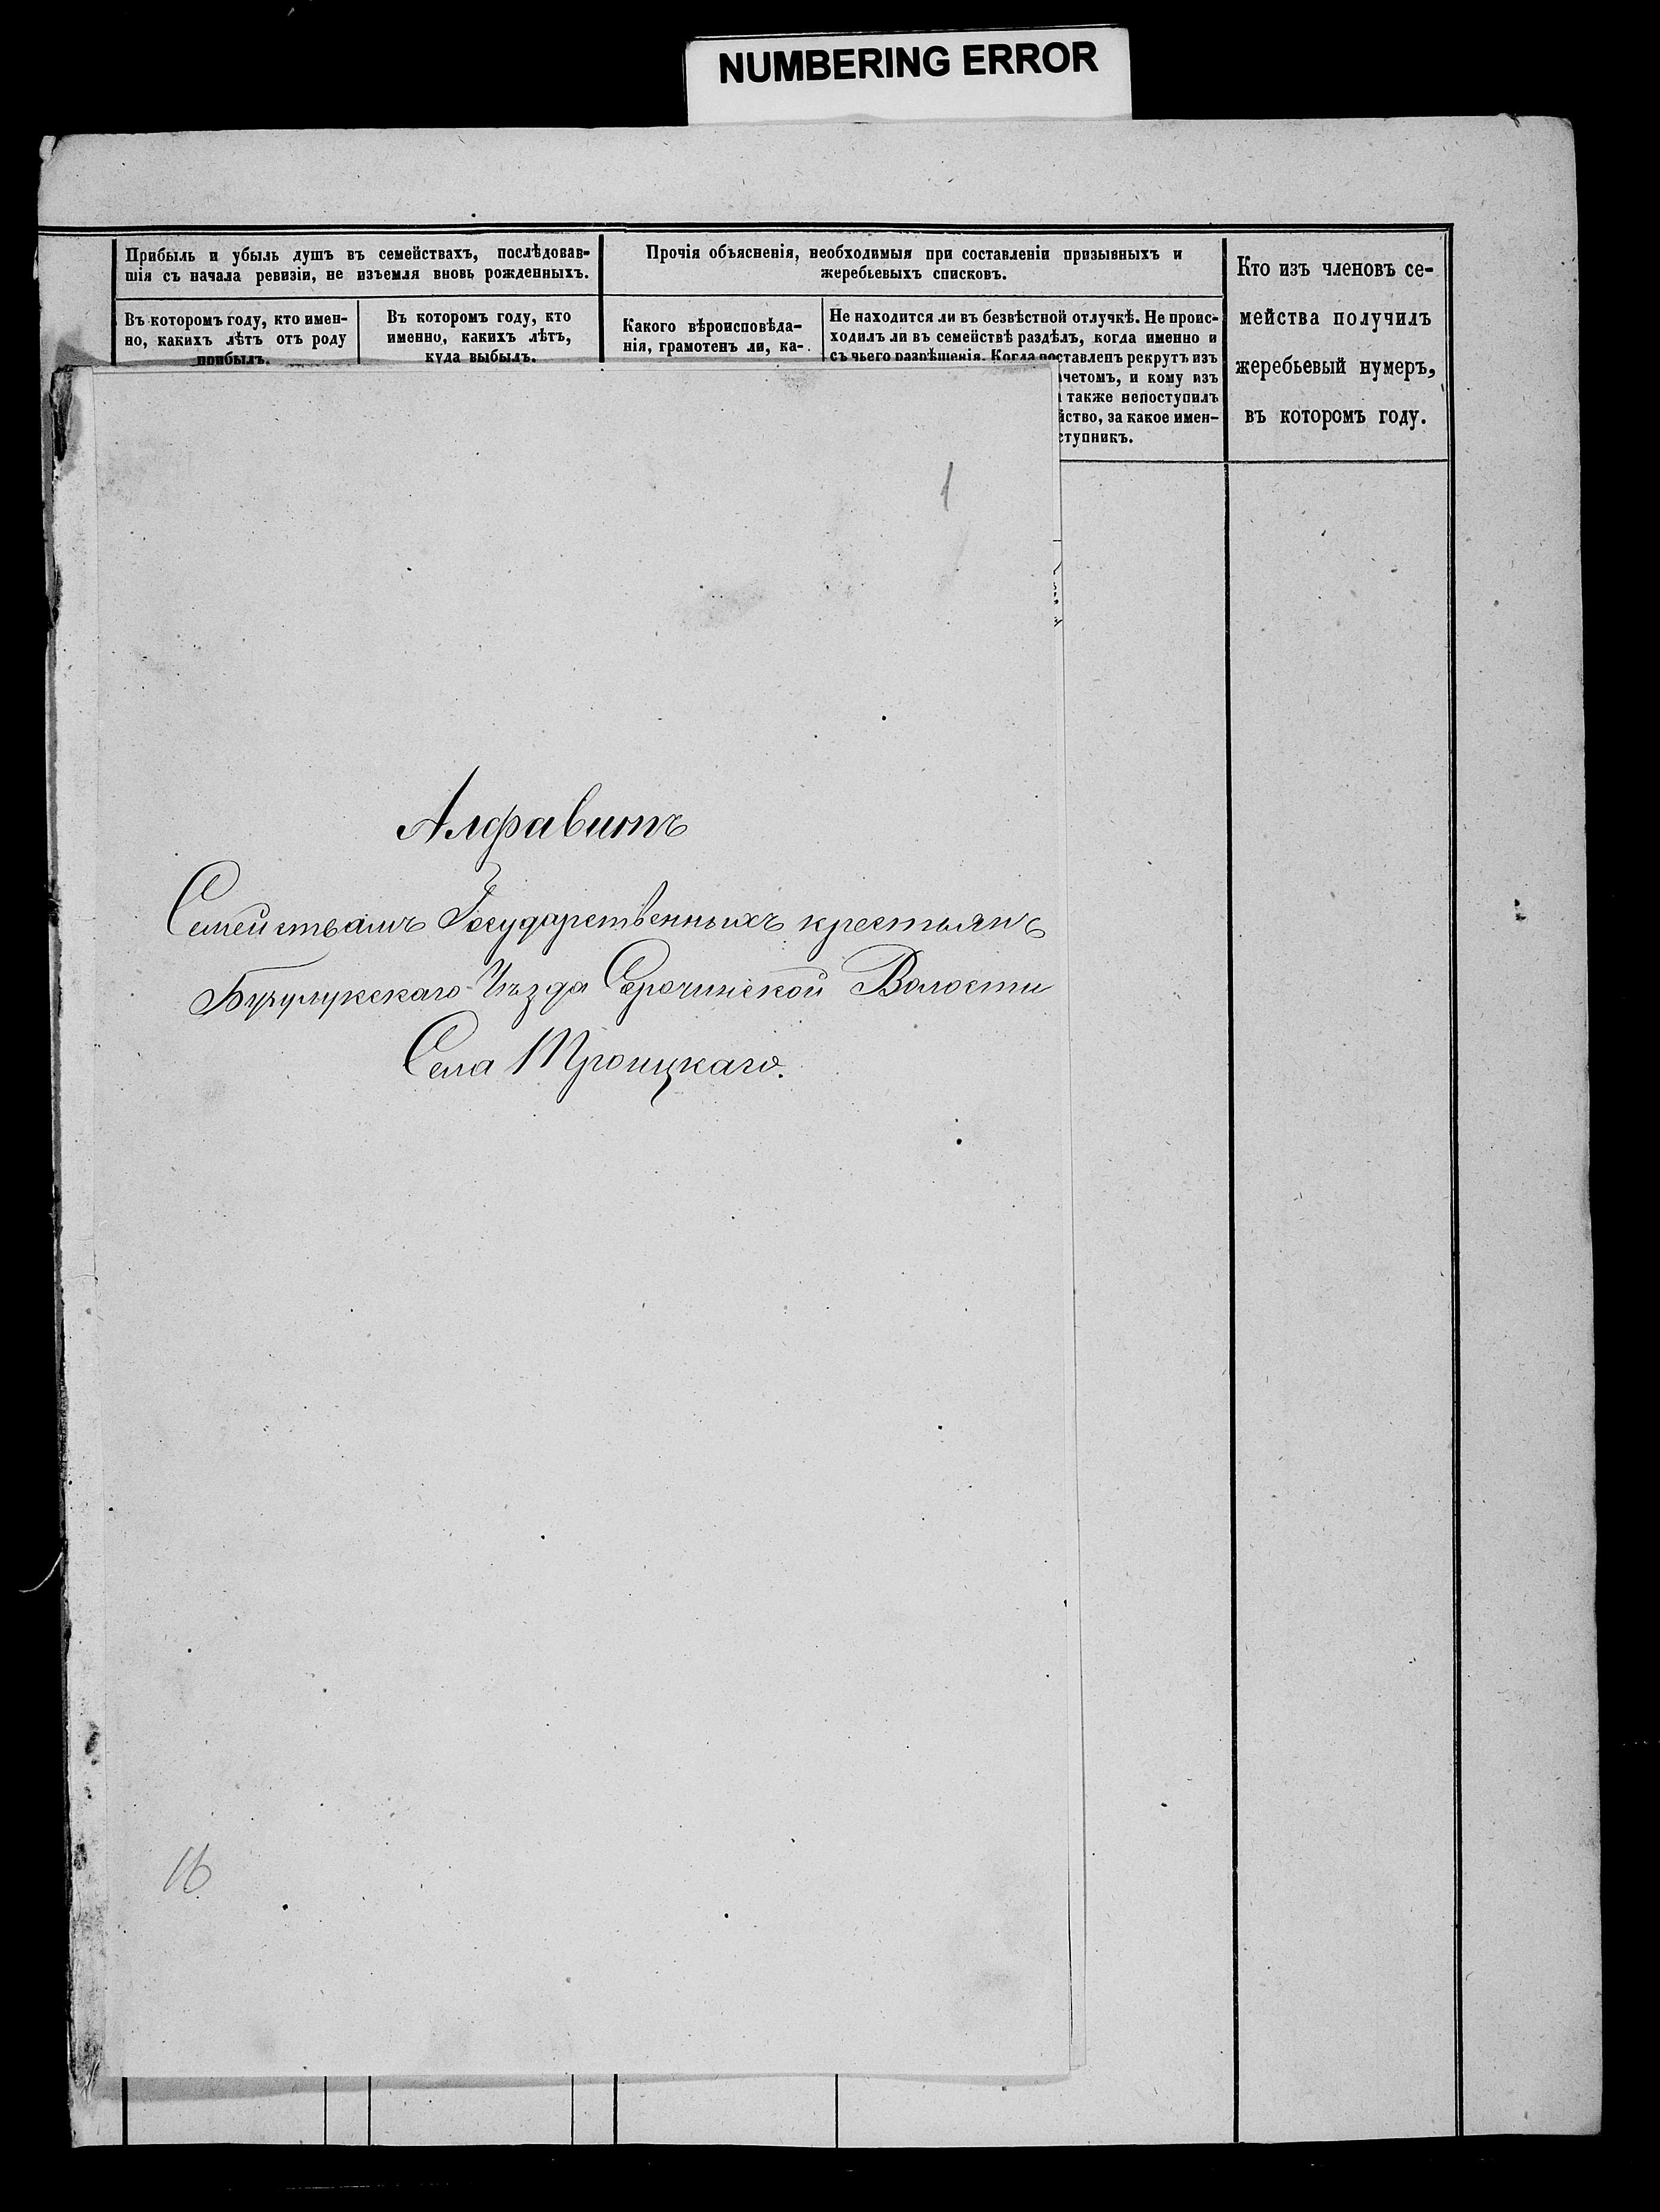 NUMBERING ERROR
Прибыль и убыль душъ въ семействахъ, послѣдовав-
шія съ начала ревизіи, не изъемля вновь рожденныхъ.
Въ которомъ году, кто имен-
но, какихъ лѣтъ отъ роду
прибылъ.
Въ которомъ году, кто
именно, какихъ лѣтъ,
куда выбылъ.
Прочія объясненія, необходимыя при составленіи призывныхъ и
жеребьевыхъ списковъ.
Какого вѣроисповѣда-
нія, грамотенъ ли, ка-
Не находится ли въ безвѣстной отлучкѣ. Не проис-
ходилъ ли въ семействѣ раздѣлъ, когда именно и
съ чьего разрѣшенія. Когда поставленъ рекрутъ изъ
четомъ, и кому изъ
также непоступилъ
йство, за какое имен-
ступникъ.
Кто изъ членовъ се-
мейства получилъ
жеребьевый нумеръ,
въ которомъ году.
1
Алфавитъ
Семействамъ Государственныхъ крестьянъ
Бузулукскаго Уѣзда Сорочинской Волости
Села Троицкаго.
16